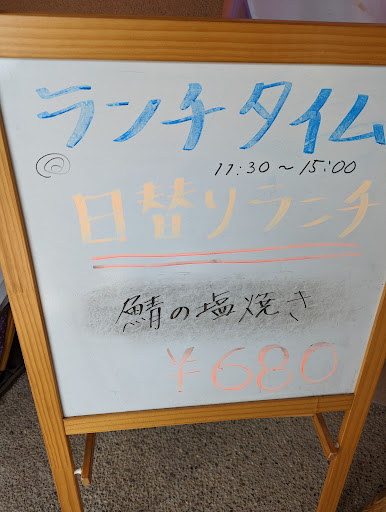 ランチタイム
@ 11:30～15:00
日替りランチ
鯖の塩焼き
¥680